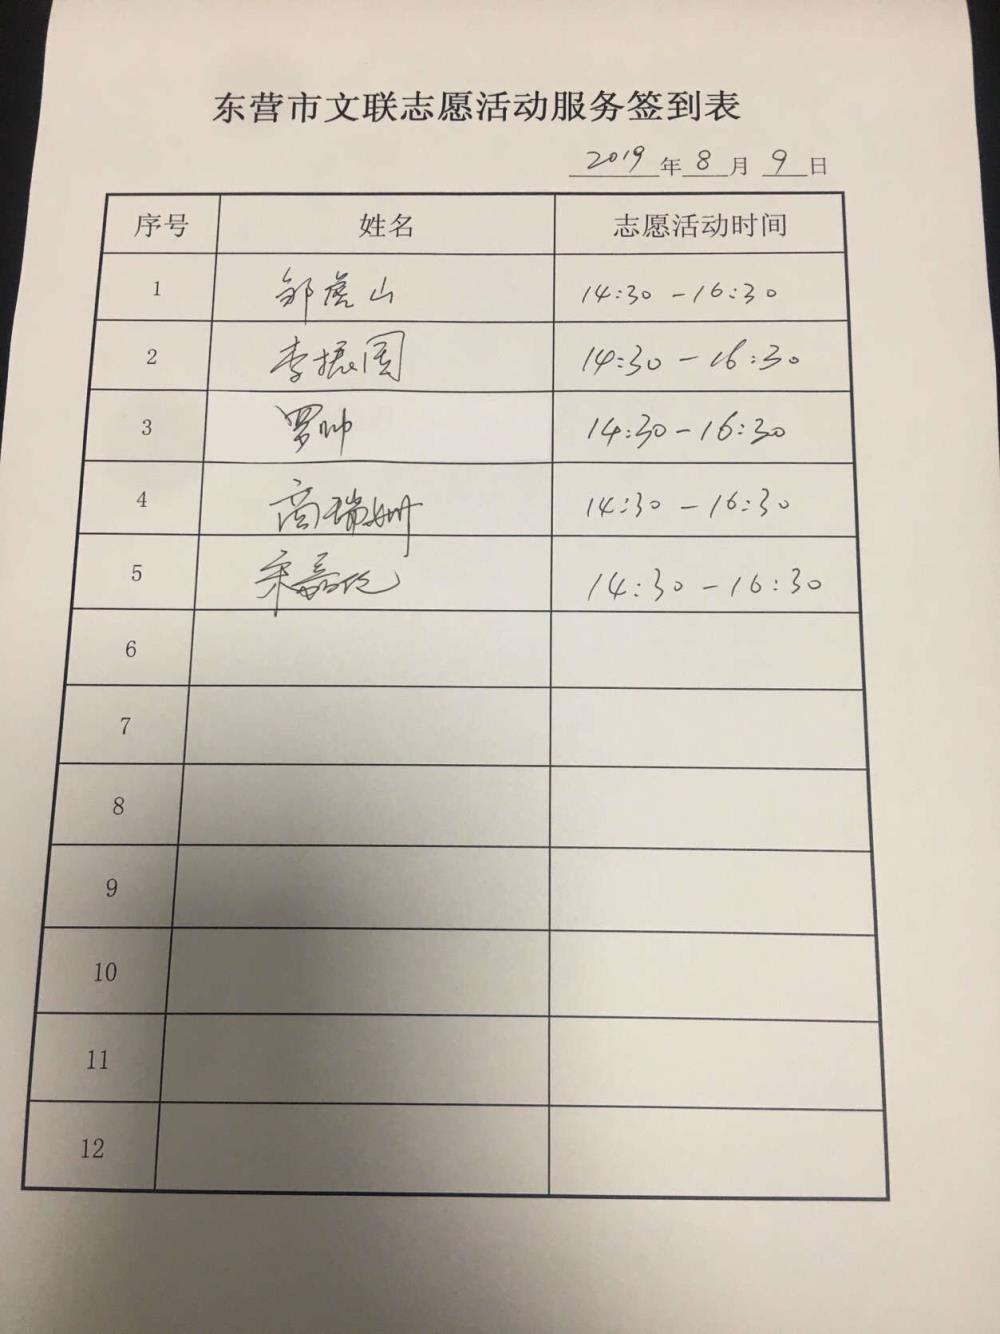 东营市文联志愿活动服务签到表
2019年8月9日
序号 姓名 志愿活动时间
1 邹虎山 14:30-16:30
2 李振国 14:30-16:30
3 罗帅 14:30-16:30
4 商瑞姗 14:30-16:30
5 14:30-16:30
6
7
8
9
10
11
12